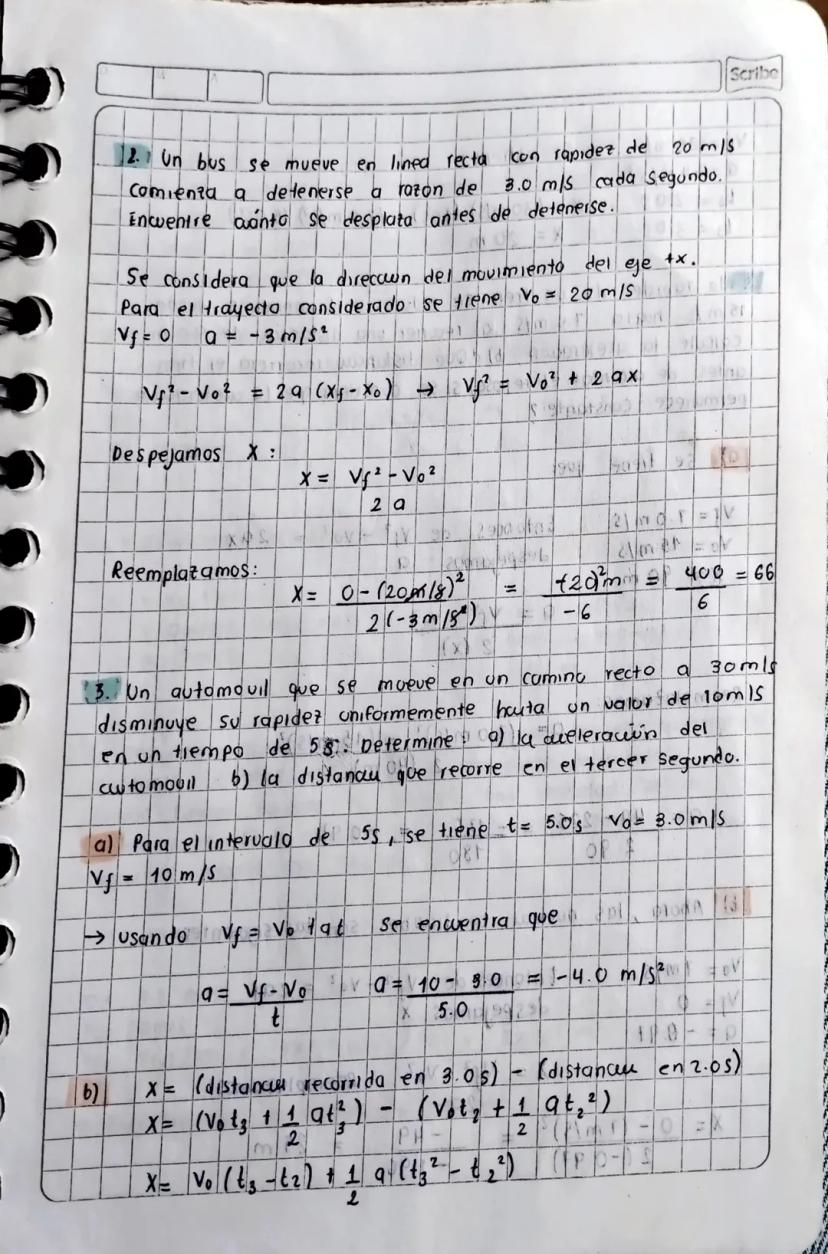 Scribe
2. Un bus se mueve en linea recta con rapidez de 20 m/s
comienza a detenerse a razon de 3.0 m/s cada segundo.
Encuentre cuánto se desplaza antes de detenerse.
Se considera que la direccion del movimiento del eje +x.
Para el trayecto considerado se tiene V₀ = 20 m/s
Vf = 0 a = -3 m/s²
Vf² - V₀² = 2a (xf - x₀) → Vf² = V₀² + 2ax
Despejamos x:
x = Vf² - V₀² / 2a
Reemplazamos:
x = 0 - (20m/s)² / 2(-3m/s²) = (20)²m / -6 = 400 / 6 = 66
3. Un automovil que se mueve en un camino recto a 30m/s
disminuye su rapidez uniformemente hasta un valor de 10m/s
en un tiempo de 5s. Determine: a) la aceleración del
automovil b) la distancia que recorre en el tercer segundo.
a) Para el intervalo de 5s, se tiene t = 5.0s V₀ = 3.0 m/s
Vf = 10 m/s
→ usando Vf = V₀ + at se encuentra que
a = Vf - V₀ / t a = 10 - 3.0 / 5.0 = -4.0 m/s²
b) x = (distancia recorrida en 3.0s) - (distancia en 2.0s)
x = (V₀t₃ + 1/2 at₃²) - (V₀t₂ + 1/2 at₂²)
x = V₀ (t₃ - t₂) + 1/2 a (t₃² - t₂²)